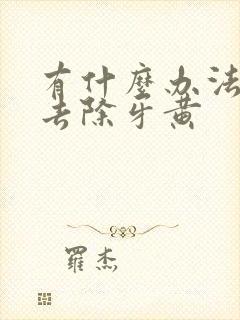 有什麼办法
去除牙黄
羅杰